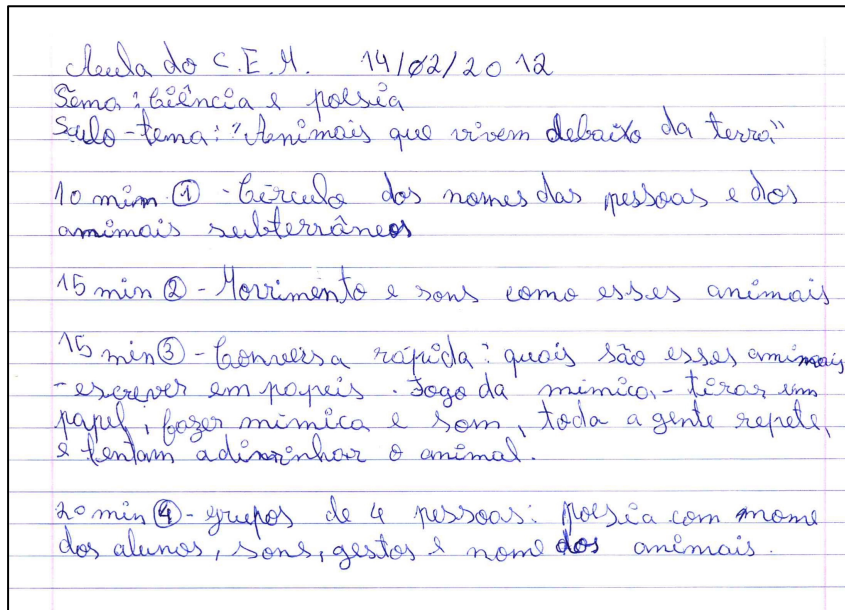 Aula do C.E.M. 14/02/2012
Tema: Ciência e poesia
Sulo-tema: "Animais que vivem debaixo da terra"
10 mim ① - Círculo dos nomes das pessoas e dos
animais subterrâneos
15 min ② - Movimento e sons como esses animais
15 min ③ - Conversa rápida: quais são esses animais
- escrever em papeis. Jogo da mimica, - tirar um
papel, fazer mimica e som, toda a gente repete,
e tentam adivinhar o animal.
20 min ④ - grupos de 4 pessoas: poesia com nome
dos alunos, sons, gestos e nome dos animais.